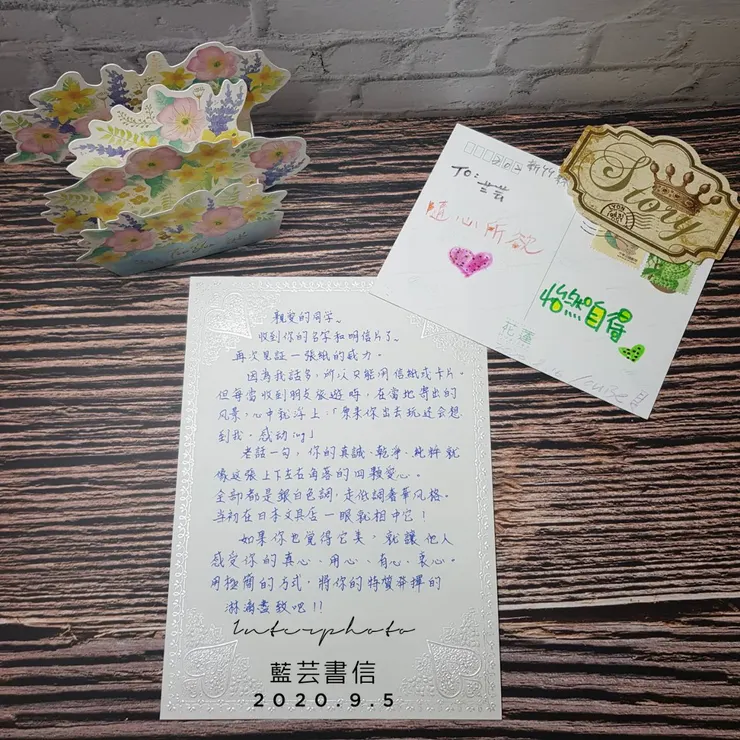 親愛的同学~
收到你的名字和明信片了~
再次見証一张紙的威力。
因為我話多,所以只能用信紙或卡片。
但每當收到朋友旅遊時,在當地寄出的
风景,心中就浮上:「原來你出去玩还会想
到我,感动ing」
老話一句,你的真誠、乾淨、純粹就
像这張上下左右角落的四顆愛心。
全部都是銀白色調,走低調奢華风格。
当初在日本文具店一眼就相中它!
如果你也覺得它美,就讓他人
感受你的真心、用心、有心、衷心。
用極簡的方式,將你的特質發揮的
淋漓盡致吧!!
Interphoto
藍芸書信
2020.9.5
TO:芸
隨心所欲
Story
怡然自得
花蓮